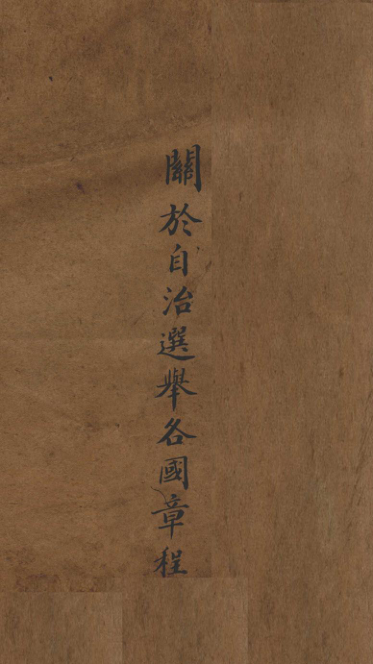 關於自治選舉各國章程